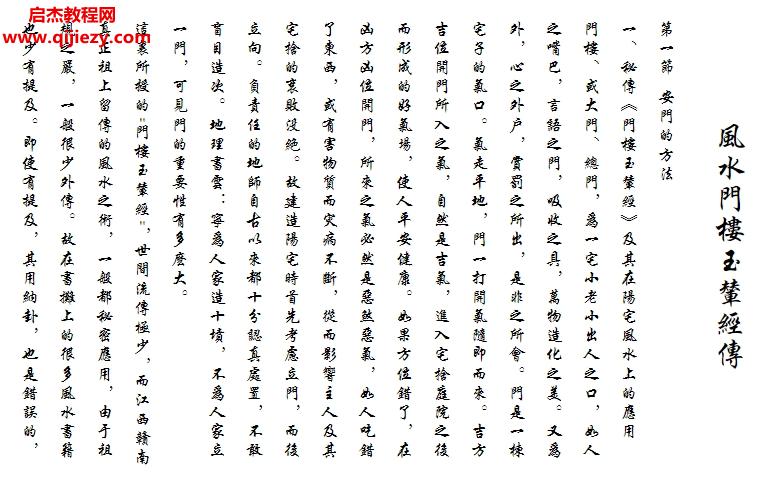 启杰教育网
www.qijiezy.com
風水門樓玉輦經傳
第一節 安門的方法
一、秘傳《門樓玉輦經》及其在陽宅風水上的應用
門樓、或大門、總門，爲一宅小老小出人之口，如人
之嘴巴，言語之門，吸收之具，萬物造化之美。又爲
外，心之外户，賞罰之所出，是非之所會。門是一棟
宅子的氣口。氣走平地，門一打開氣隨即而來。吉方
吉位開門所入之氣，自然是吉氣，進入宅捨庭院之後
而形成的好氣場，使人平安健康。如果方位錯了，在
凶方凶位開門，所來之氣必然是惡煞惡氣，如人吃錯
了東西，或有害物質而灾病不斷，從而影響主人及其
宅捨的衰敗没絶。故建造陽宅時首先考慮立門，而後
立向。負責任的地師自古以來都十分認真處置，不敢
盲目造次。地理書雲：寧爲人家造十墳，不爲人家立
一門，可見門的重要性有多麽大。
這裏所授的"門樓玉輦經"，世間流傳極少，而江西贛南
真正祖上留傳的風水之術，一般都秘密應用，由于祖
規之嚴，一般很少外傳。故在書攤上的很多風水書籍
也少有提及。即使有提及，其用納卦，也是錯誤的，